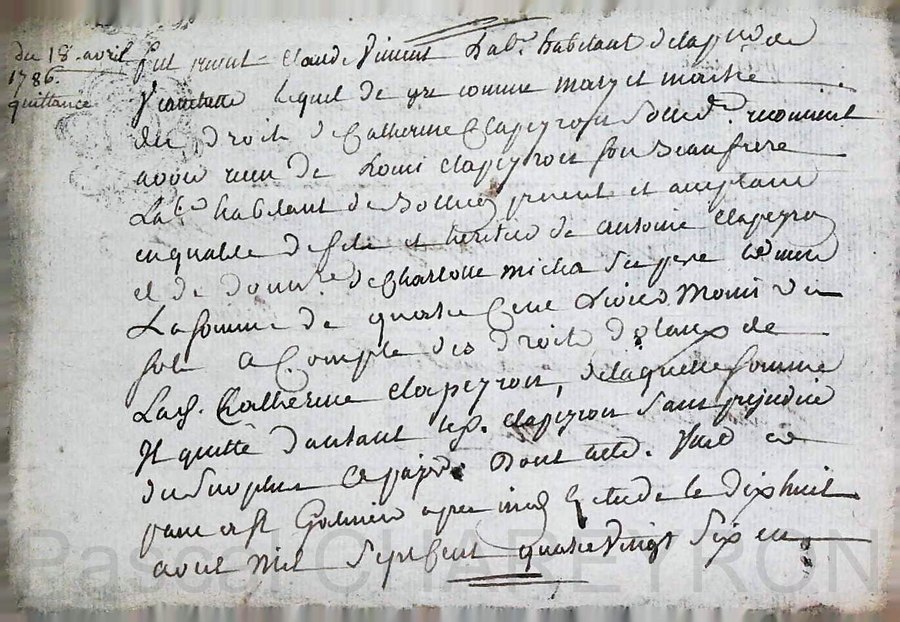 du 18 avril
1786.
quittance
fut present Claude Vincent Lab.r habitant de la p.sse de
lequel de gre comme mary et maitre
des droits de Catherine Clapeyron reconnoit
avoir reçu de Louis Clapeyron son beaufrere
Lab.r habitant de present et acceptant
en qualité de fils et heritier de antoine Clapeyron
et de de Charlotte micha ses pere et mere
La somme de quatre Cent Livres Moins un
sol a Compte des droits de
Lad. Catherine Clapeyron, de laquelle somme
Il quitte d'autant led. Clapeyron Sans prejudice
du surplus Dont acte. fait et
passé a St Galmier apres midy Etude le dix huit
avril Mil Sept Cent quatre Vingt Six
Pascal CHAREYRON